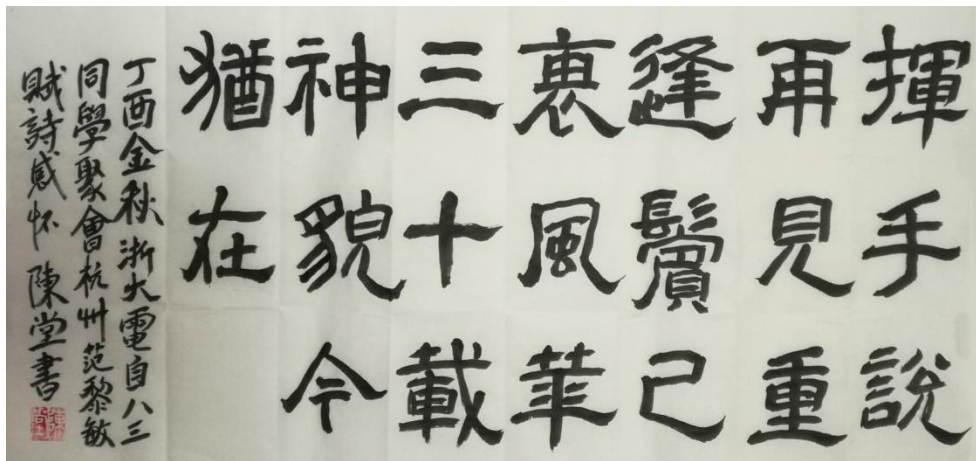 揮手說
再見重
逢鬢已
衰風華
三十載
神貌今
猶在
丁酉金秋浙大電自八三
同學聚會杭州范黎敏
賦詩感怀 陳堂書